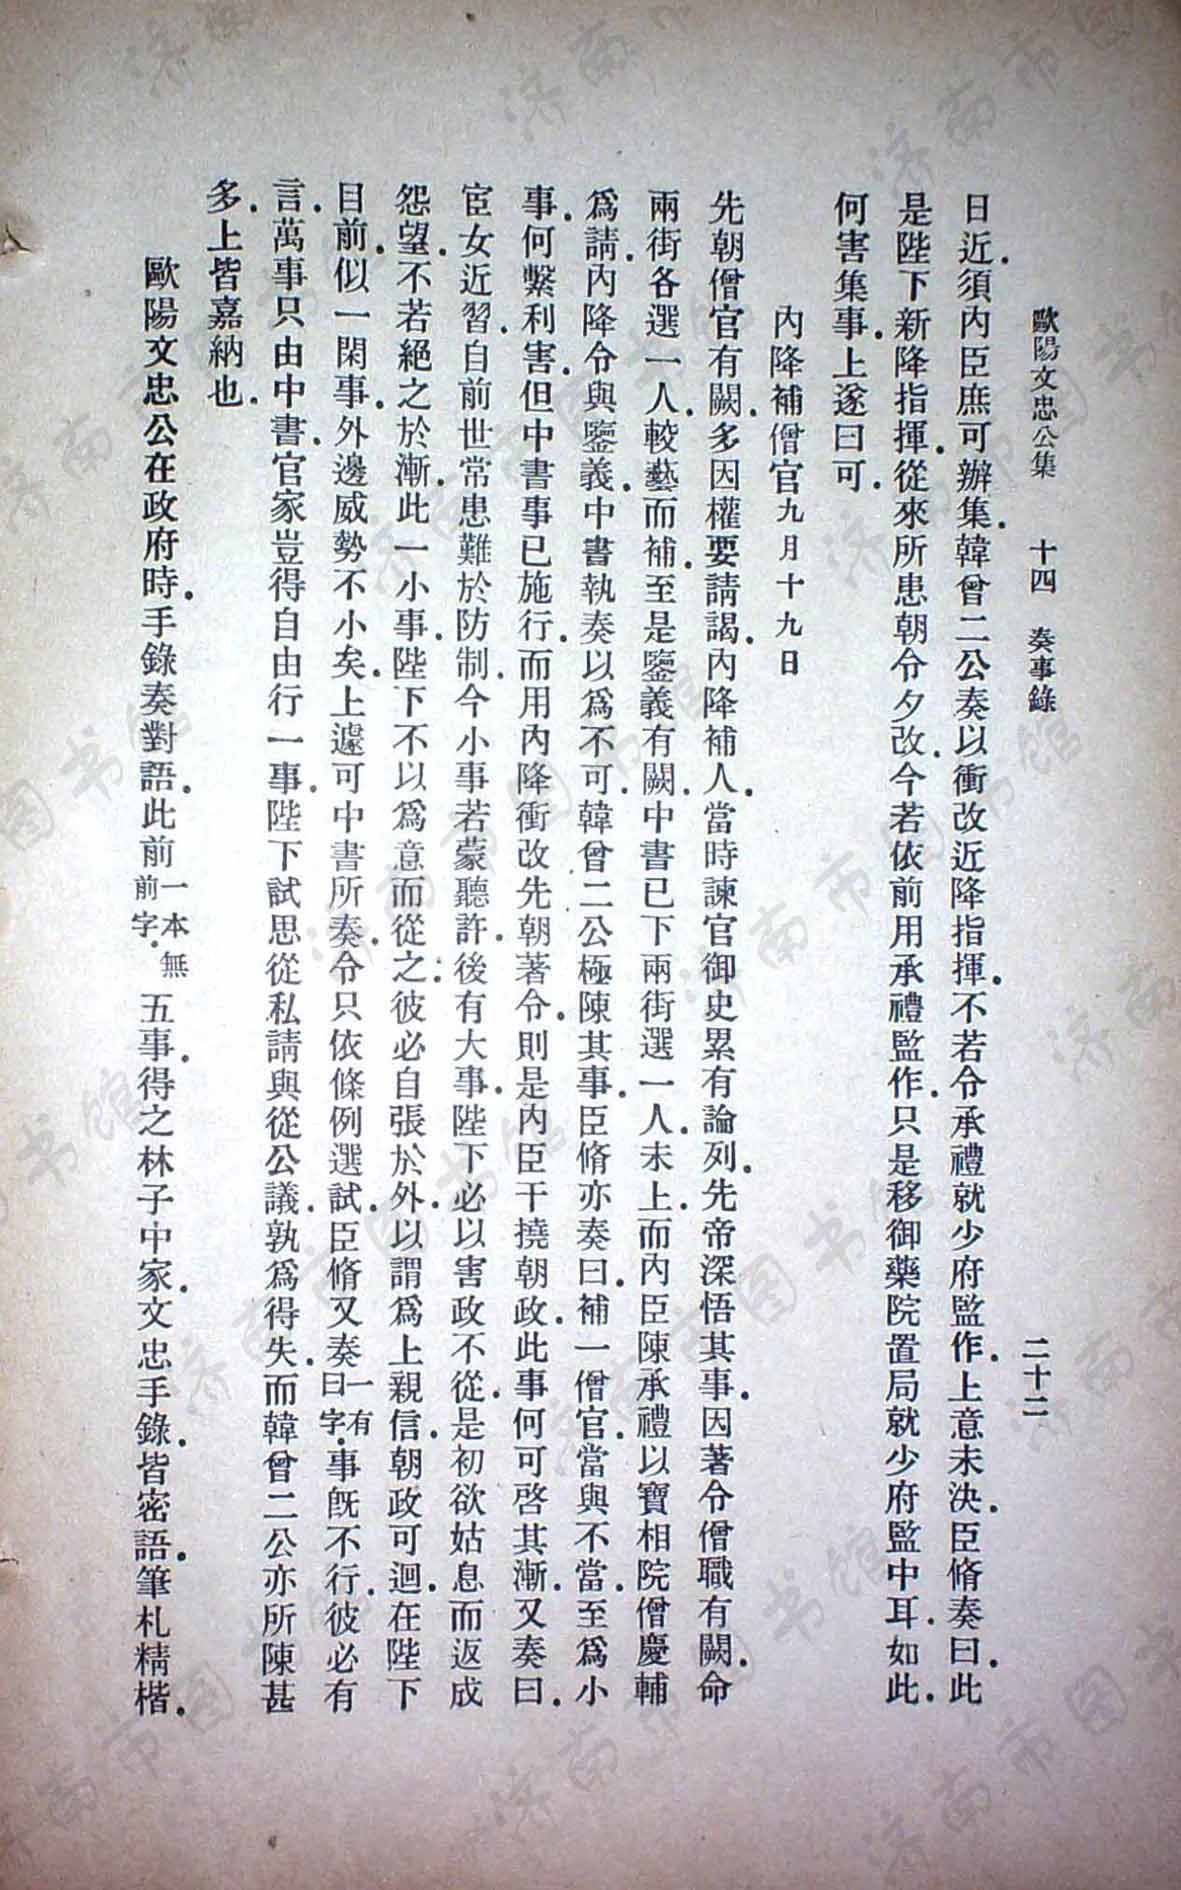 歐陽文忠公集　十四　奏事錄　二十二
日近．須內臣庶可辦集．韓曾二公奏以衝改近降指揮．不若令承禮就少府監作．上意未決．臣脩奏曰．此
是陛下新降指揮．從來所患朝令夕改．今若依前用承禮監作．只是移御藥院置局就少府監中耳．如此．
何害集事．上遂曰可．
內降補僧官九月十九日
先朝僧官有闕．多因權要請謁．內降補人．當時諫官御史累有論列．先帝深悟其事．因著令僧職有闕．命
兩街各選一人．較藝而補．至是鑒義有闕．中書已下兩街選一人．未上．而內臣陳承禮以寶相院僧慶輔
爲請．內降令與鑒義．中書執奏以爲不可．韓曾二公極陳其事．臣脩亦奏曰．補一僧官．當與不當．至爲小
事．何繫利害．但中書事已施行．而用內降衝改先朝著令．則是內臣干撓朝政．此事何可啓其漸．又奏曰．
宦女近習．自前世常患難於防制．今小事若蒙聽許．後有大事．陛下必以害政不從．是初欲姑息而返成
怨望．不若絕之於漸．此一小事．陛下不以爲意而從之．彼必自張於外．以謂爲上親信．朝政可迴．在陛下
目前．似一閑事．外邊威勢不小矣．上遽可中書所奏．令只依條例選試．臣脩又奏一有曰字．事既不行．彼必有
言．萬事只由中書．官家豈得自由行一事．陛下試思從私請與從公議．孰爲得失．而韓曾二公亦所陳甚
多．上皆嘉納也．
歐陽文忠公在政府時．手錄奏對語．此前一本無前字．五事．得之林子中家．文忠手錄．皆密語．筆札精楷．
济南市图书馆